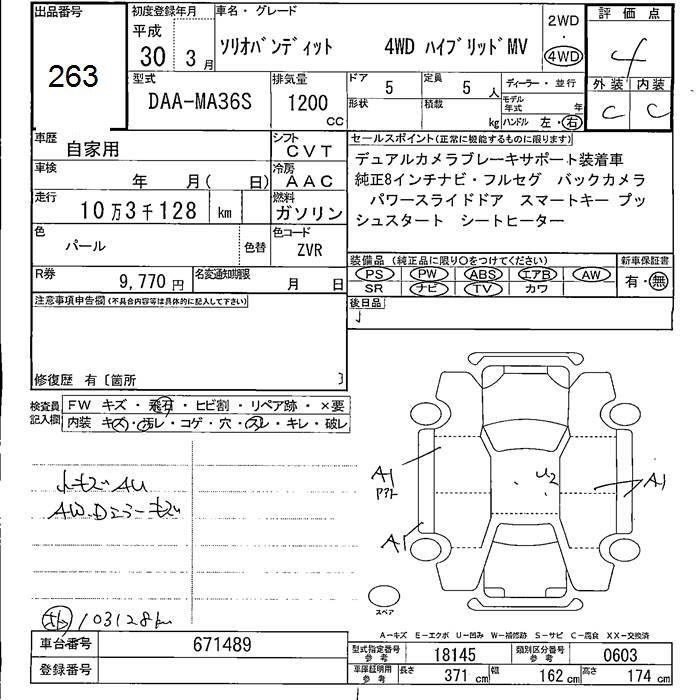 出品番号
263
初度登録年月
平成
30 3月
車名・グレード
ソリオバンディット 4WD ハイブリッドMV
2WD
・
4WD
評価点
4
外装 内装
C C
型式
DAA-MA36S
排気量
1200
CC
ドア 5
定員 5 人
形状
積載 kg
ディーラー・並行
モデル年式 年
ハンドル 左・右
車歴
自家用
シフト
CVT
車検
年 月( 日)
冷房
AAC
走行
10万3千128 km
燃料
ガソリン
色
パール
色替
色コード
ZVR
R券
9,770 円
名変通知期限
月 日
セールスポイント(正常に機能するものに限ります)
デュアルカメラブレーキサポート装着車
純正8インチナビ・フルセグ バックカメラ
パワースライドドア スマートキー プッ
シュスタート シートヒーター
装備品(純正品に限り○をつけてください)
PS PW ABS エアB AW
SR ナビ TV カワ
新車保証書
有・無
後日品
注意事項申告欄(不具合内容等は具体的に記入して下さい)
修復歴 有〔箇所 〕
検査員記入欄
FW キズ・飛石・ヒビ割・リペア跡・×要
内装 キズ・汚レ・コゲ・穴・スレ・キレ・破レ
小キズAU
AW.Dミラーキズ
103128km
A1
アト
A1
U2
A1
スペア
A-キズ E-エクボ U-凹み W-補修跡 S-サビ C-腐食 XX-交換済
車台番号
671489
登録番号
型式指定番号
参考
18145
類別区分番号
参考
0603
車庫証明用
参考
長さ 371 cm
幅 162 cm
高さ 174 cm